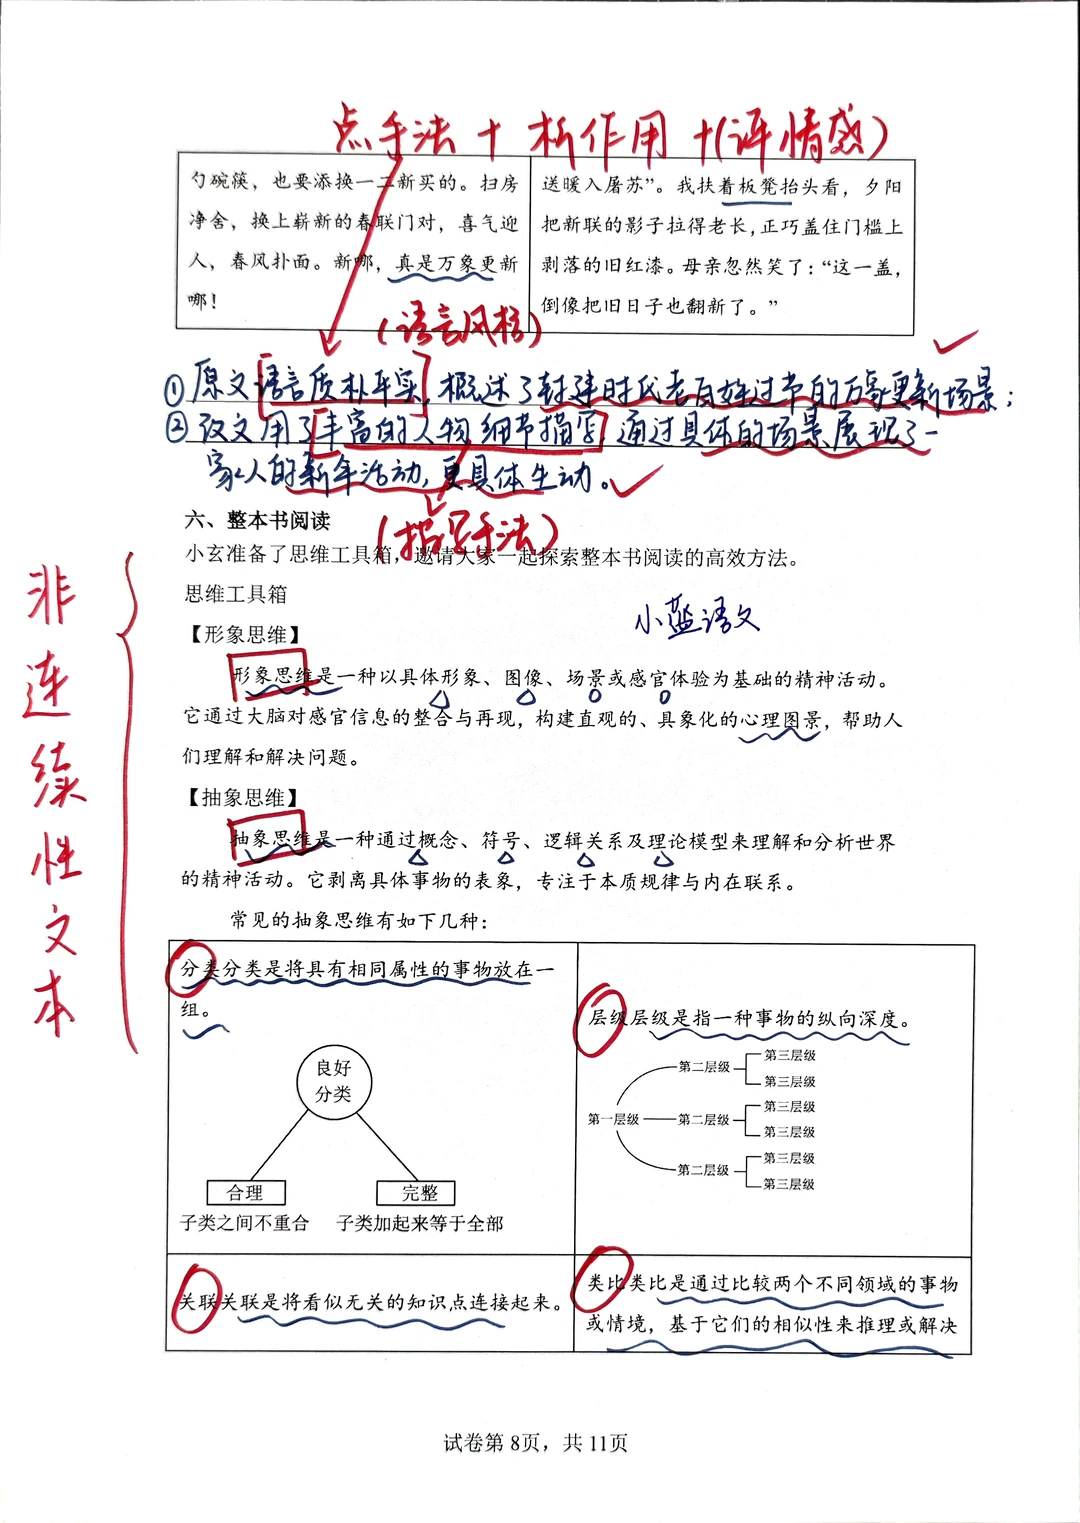 点手法+析作用+(评情感)
勺碗筷，也要添换一二新买的。扫房
净舍，换上崭新的春联门对，喜气迎
人，春风扑面。新哪，真是万象更新
哪！
送暖入屠苏”。我扶着板凳抬头看，夕阳
把新联的影子拉得老长，正巧盖住门槛上
剥落的旧红漆。母亲忽然笑了：“这一盖，
倒像把旧日子也翻新了。”
(语言风格)
①原文语言质朴平实，概述了封建时代老百姓过节的万象更新场景；
②改文用了丰富的人物细节描写，通过具体的场景展现了一
家人的新年活动，更具体生动。
(描写手法)
六、整本书阅读
小玄准备了思维工具箱，邀请大家一起探索整本书阅读的高效方法。
思维工具箱
小蓝语文
【形象思维】
形象思维是一种以具体形象、图像、场景或感官体验为基础的精神活动。
它通过大脑对感官信息的整合与再现，构建直观的、具象化的心理图景，帮助人
们理解和解决问题。
【抽象思维】
抽象思维是一种通过概念、符号、逻辑关系及理论模型来理解和分析世界
的精神活动。它剥离具体事物的表象，专注于本质规律与内在联系。
常见的抽象思维有如下几种：
非连续性文本
分类分类是将具有相同属性的事物放在一
组。
良好
分类
合理
完整
子类之间不重合
子类加起来等于全部
层级层级是指一种事物的纵向深度。
第一层级
第二层级
第三层级
第三层级
第二层级
第三层级
第三层级
第二层级
第三层级
第三层级
关联关联是将看似无关的知识点连接起来。
类比类比是通过比较两个不同领域的事物
或情境，基于它们的相似性来推理或解决
试卷第8页，共11页